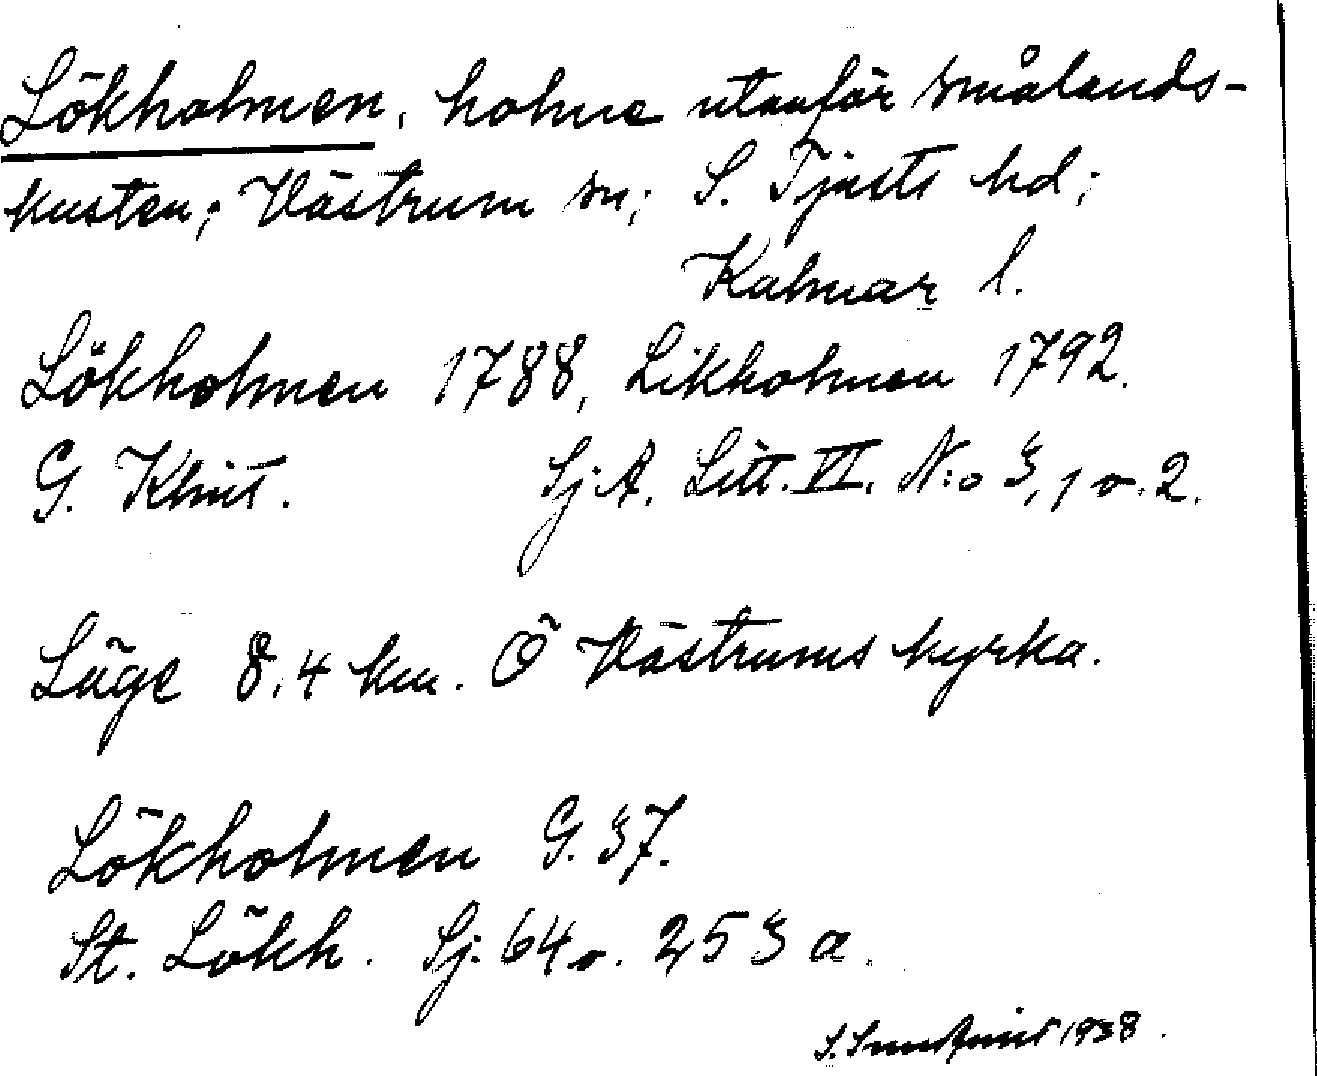 Lökholmen, holme utanför Smålands-
kusten; Västrum sn; S. Tjusts hd;
Kalmar l.
Lökholmen 1788, Likholmen 1792.
G. Klint. Sj.A. Litt. VI. N:o 3, 1 o. 2.
Läge 8,4 km. Ö Västrums kyrka.
Lökholmen G. 37.
St. Lökh. Sj. 64 o. 253 a.
1938.